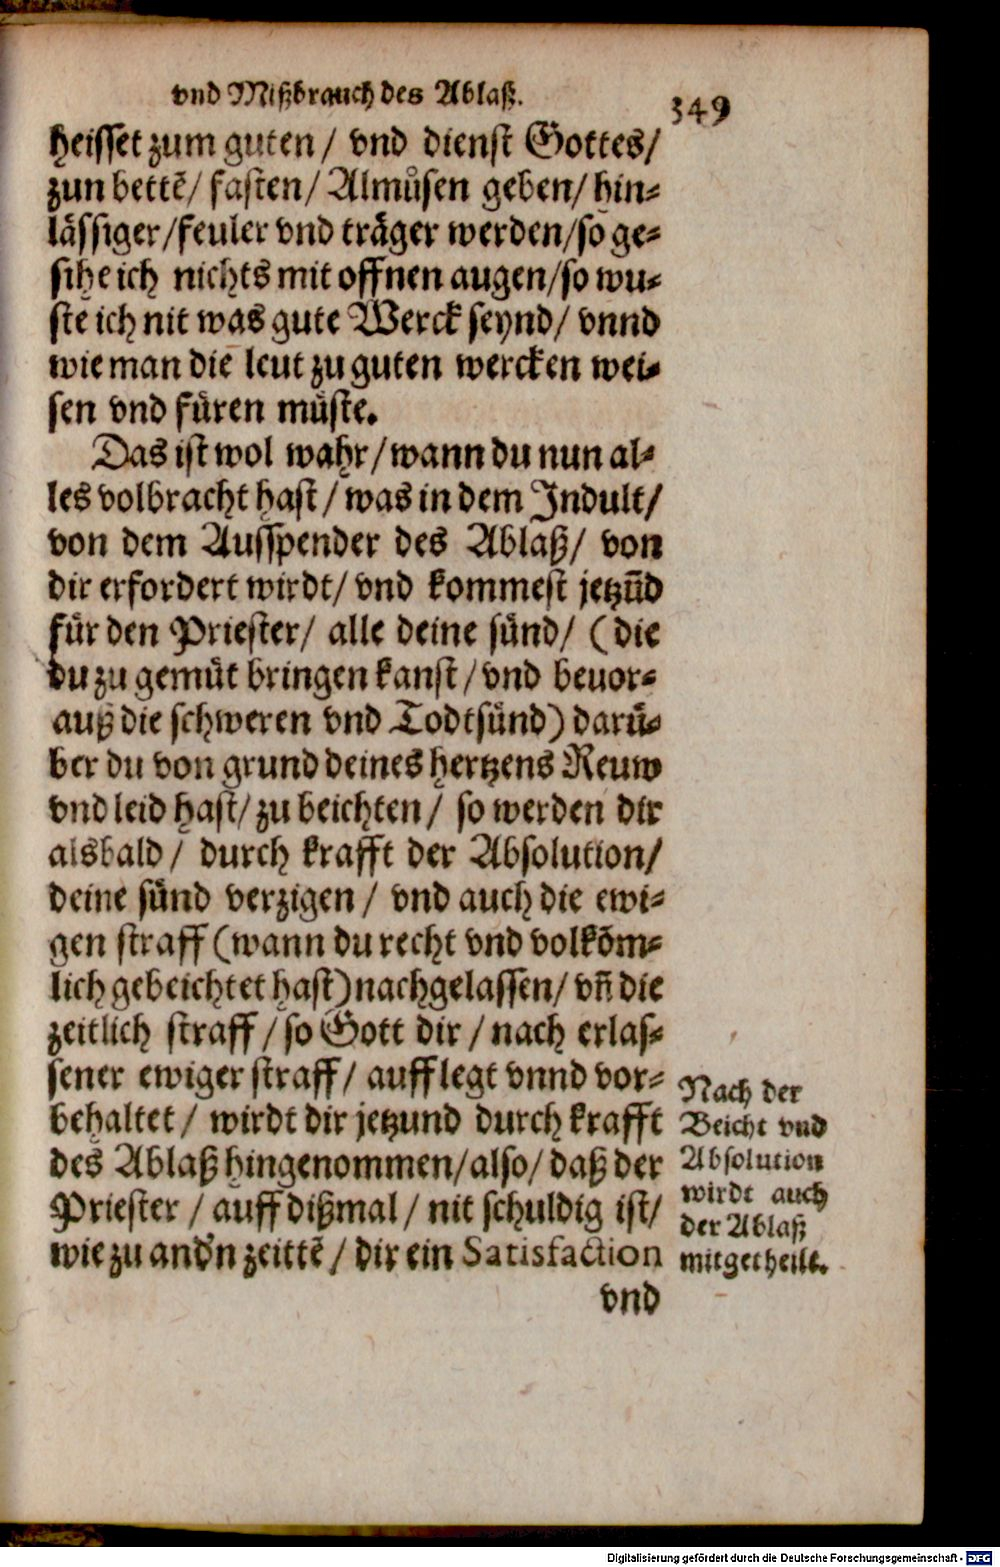 vnd Mißbrauch des Ablaß.
349
heisset zum guten / vnd dienst Gottes /
zun bettē / fasten / Almůsen geben / hin-
lässiger / feuler vnd träger werden / so ge-
sihe ich nichts mit offnen augen / so wu-
ste ich nit was gute Werck seynd / vnnd
wie man die leut zu guten wercken wei-
sen vnd füren müste.
Das ist wol wahr / wann du nun al-
les volbracht hast / was in dem Indult /
von dem Ausspender des Ablaß / von
dir erfordert wirdt / vnd kommest jetzūd
für den Priester / alle deine sünd / (die
du zu gemüt bringen kanst / vnd beuor-
auß die schweren vnd Todtsünd) darü-
ber du von grund deines hertzens Reuw
vnd leid hast / zu beichten / so werden dir
alsbald / durch krafft der Absolution /
deine sünd verzigen / vnd auch die ewi-
gen straff (wann du recht vnd volkōm-
lich gebeichtet hast) nachgelassen / vn̄ die
zeitlich straff / so Gott dir / nach erlas-
sener ewiger straff / aufflegt vnnd vor-
behaltet / wirdt dir jetzund durch krafft
des Ablaß hingenommen / also / daß der
Priester / auff dißmal / nit schuldig ist /
wie zu and'n zeittē / dir ein Satisfaction
vnd
Nach der
Beicht vnd
Absolution
wirdt auch
der Ablaß
mitgetheilt.
Digitalisierung gefördert durch die Deutsche Forschungsgemeinschaft - DFG